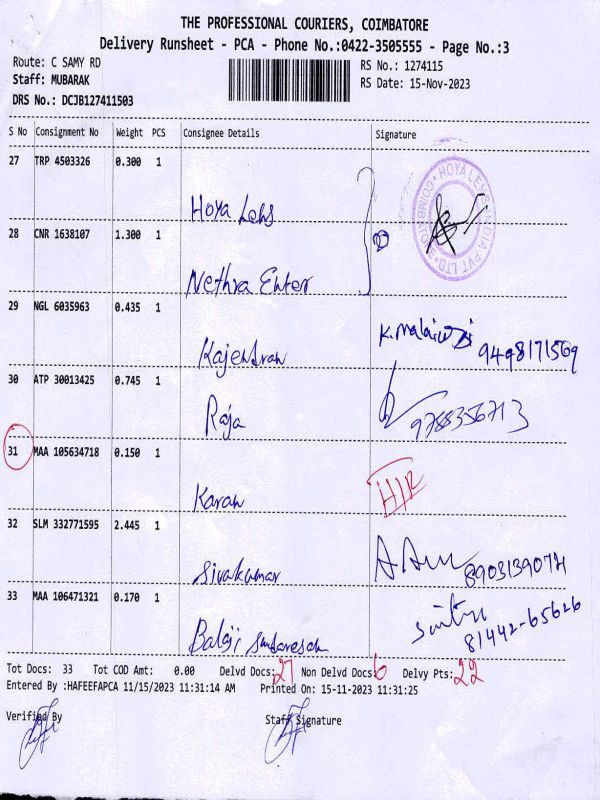 THE PROFESSIONAL COURIERS, COIMBATORE
Delivery Runsheet - PCA - Phone No.:0422-3505555 - Page No.:3
Route: C SAMY RD
RS No.: 1274115
Staff: MUBARAK
RS Date: 15-Nov-2023
DRS No.: DCJB127411503
S No Consignment No Weight PCS Consignee Details Signature
27 TRP 4503326 0.300 1
Hoya Lens
28 CNR 1638107 1.300 1
Nethra Enter
29 NGL 6035963 0.435 1
Rajendran
9498171569
30 ATP 30013425 0.745 1
Raja
9788356713
31 MAA 105634718 0.150 1
Karan
32 SLM 332771595 2.445 1
Sivakumar
8903139074
33 MAA 106471321 0.170 1
Balaji
81442-65626
Tot Docs: 33 Tot COD Amt: 0.00 Delvd Docs: 27 Non Delvd Docs: 6 Delvy Pts: 22
Entered By :HAFEEFAPCA 11/15/2023 11:31:14 AM Printed On: 15-11-2023 11:31:25
Verified By Staff Signature